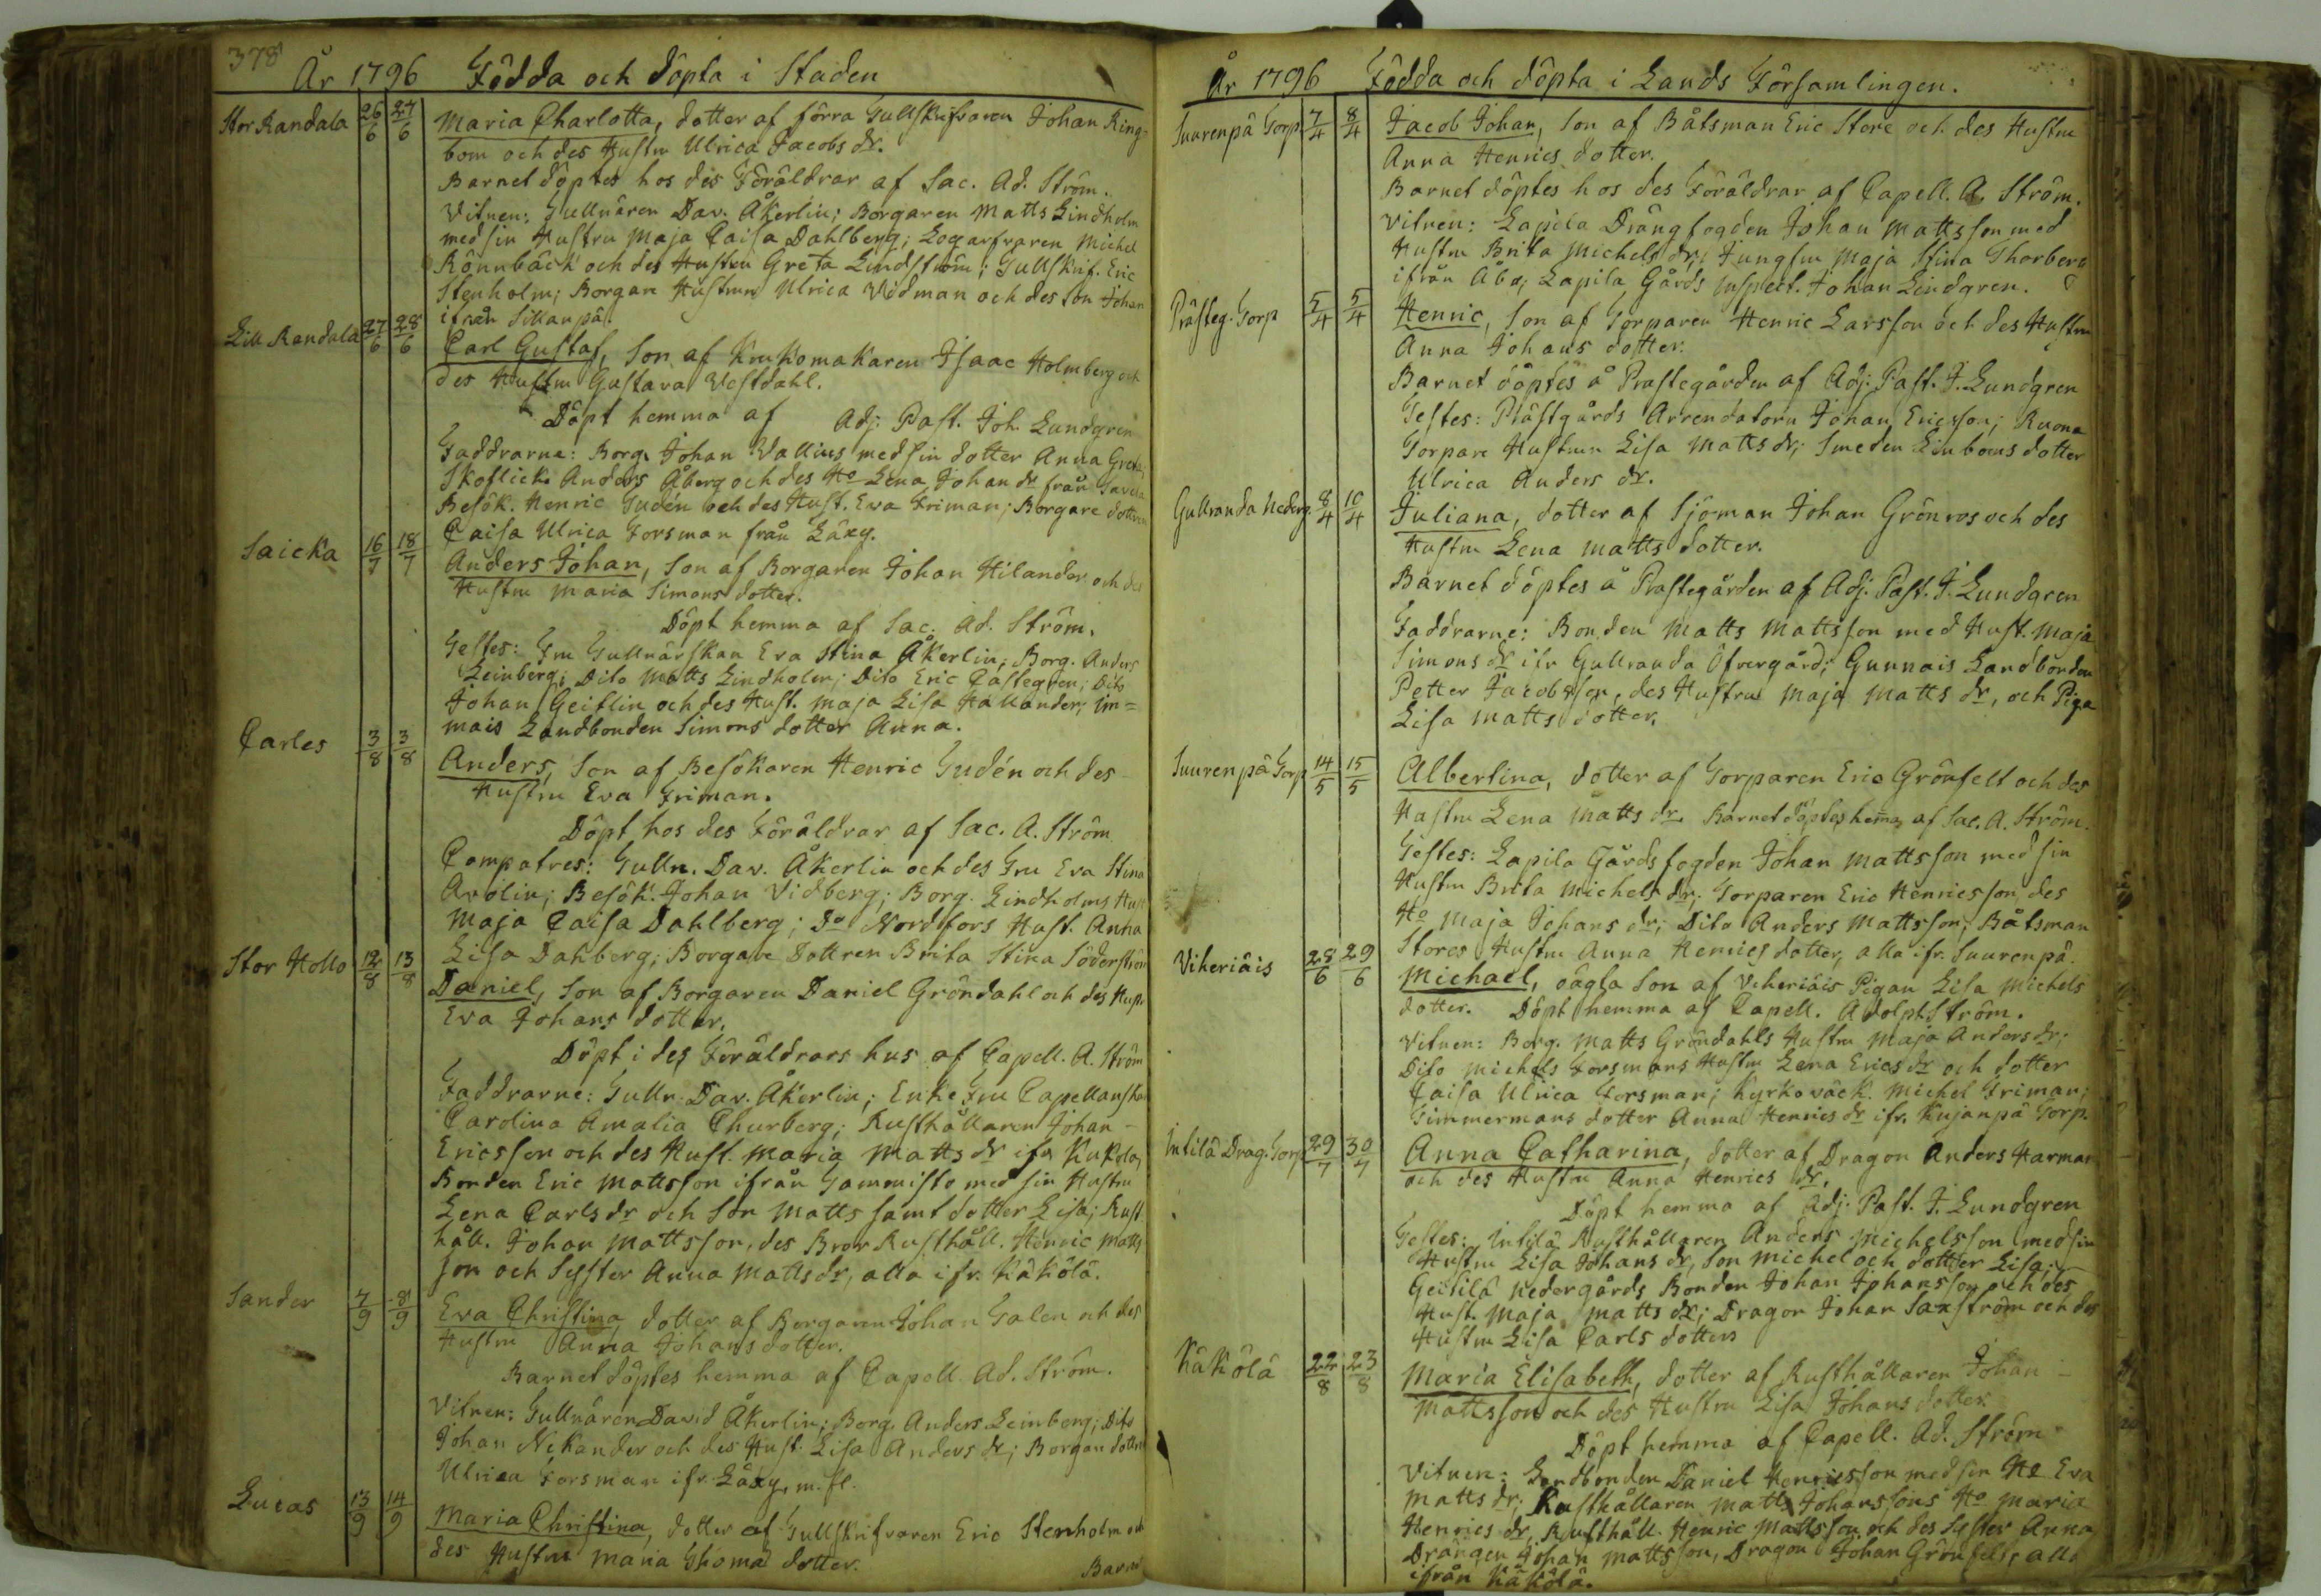 378
År 1796 Födda och döpta i Staden
Stor Randala 26/6 27/6 Maria Charlotta, dotter af förra Tullskrifvaren Johan Ring-
bom och des Hustru Ulrica Jacobs dr.
Barnet döptes hos des Föräldrar af Sac. Ad. Ström.
Vitnen: Tullnären Dav. Åkerlin; Borgaren Matts Lindholm
med sin Hustru Maja Caisa Dahlberg; Logarfvaren Michel
Rönnbäck och des Hustru Greta Lindström; Tullskrif. Eric
Stenholm; Borgare Hustrun Ulrica Vidman och des Son Johan
ifrån Sillanpä.
Lill Randala 27/6 28/6 Carl Gustaf, Son af Krukomakaren Isaac Holmberg och
des Hustru Gustava Vestdahl.
Döpt hemma af Adj. Past. Joh. Lundgren
Faddrarne: Borg. Johan Vallius med sin dotter Anna Greta,
Skoflick. Anders Åberg och des Ho Lena Johans dr från
Besök. Henric Gudén och des Hust. Eva Friman; Borgare dottren
Caisa Ulrica Forsman från Läxy.
Saicka 16/7 18/7 Anders Johan, Son af Borgaren Johan Hilander och des
Hustru Maria Simons dotter.
Döpt hemma af Sac. Ad. Ström.
Testes: Fru Tullnärskan Eva Stina Åkerlin; Borg. Anders
Leinberg; Dito Matts Lindholm; Dito Eric Castegren; Dito
Johan Geitlin och des Hust. Maja Lisa Hallander; Im=
mais Landbonden Simons dotter Anna.
Carles 3/8 3/8 Anders, Son af Besökaren Henric Gudén och des
Hustru Eva Friman.
Döpt hos des Föräldrar af Sac. A. Ström
Compatres: Tulln. Dav. Åkerlin och des Fru Eva Stina
Avolin; Besök. Johan Vidberg; Borg. Lindholms Hust
Maja Caisa Dahlberg; Do Nordfors Hust. Anna
Lisa Dahberg; Borgare Dottren Brita Stina Söderström
Stor Hollo 12/8 13/8 Daniel, Son af Borgaren Daniel Gröndahl och des Hustr
Eva Johans dotter.
Döpt i des Föräldrars hus af Capell. A. Ström
Faddrarne: Tulln. Dav. Åkerlin; Enke Fru Capellanskan
Carolina Amalia Churberg; Rusthållaren Johan
Ericsson och des Hust. Maria Matts dr ifr. Kukola,
Bonden Eric Mattsson ifrån Tammisto med sin Hustru
Lena Carls dr och Son Matts samt dotter Lisa; Rust
håll. Johan Mattsson, des Bror Rusthåll. Henric Matts
son och Syster Anna Matts dr, alla ifr. Käkölä.
Sander 7/9 8/9 Eva Christina, dotter af Borgaren Johan Galen och des
Hustru Anna Johans dotter.
Barnet döptes hemma af Capell. Ad. Ström.
Vitnen: Tullnären David Åkerlin; Borg. Anders Leinberg; Dito
Johan Nikander och des Hust. Lisa Anders dr; Borgare dottren
Ulrica Forsman ifr. Läxy, m. fl.
Lucas 13/9 14/9 Maria Christina, dotter af Tullskrifvaren Eric Stenholm och
des Hustru Maria Thomæ dotter.
Barnet
År 1796 Födda och döpta i Lands Församlingen.
Suurenpä Torp 7/4 8/4 Jacob Johan, Son af Båtsman Eric Store och des Hustru
Anna Henrics dotter.
Barnet döptes hos des Föräldrar af Capell. A. Ström.
Vitnen: Lapila Drängfogden Johan Mattsson med
Hustru Brita Michels dr; Jungfru Maja Stina Thorberg
ifrån Åbo; Lapila Gårds Inspect. Johan Lindgren.
Prästeg. Torp 5/4 5/4 Henric, Son af Torparen Henric Larsson och des Hustru
Anna Johans dotter.
Barnet döptes å Prästegården af Adj. Past. J. Lundgren
Testes: Prästgårds Arrendatorn Johan Ericsson; Ruona
Torpare Hustrun Lisa Matts dr; Smeden Linboms dotter
Ulrica Anders dr.
Gullranda Nederg. 8/4 10/4 Juliana, dotter af Sjöman Johan Grönros och des
Hustru Lena Matts dotter.
Barnet döptes å Prästegården af Adj. Past. J. Lundgren
Faddrarne: Bonden Matts Mattsson med Hust. Maja
Simons dr ifr Gullranda Öfvergård; Gunnais Landbonden
Petter Jacobsson, des Hustru Maja Matts dr, och Piga
Lisa Matts dotter.
Suurenpä Torp 14/5 15/5 Albertina, dotter af Torparen Eric Grönfelt och des
Hustru Lena Matts dr. Barnet döptes hema af Sac. A. Ström.
Testes: Lapila Gårdsfogden Johan Mattsson med sin
Hustru Brita Michels dr; Torparen Eric Henricsson, des
Ho Maja Johans dr; Dito Anders Mattsson; Båtsman
Stores Hustru Anna Henrics dotter, alla ifr. Suurenpä.
Vikeriäis 28/6 29/6 Michael, oägta Son af Vikeriäis Pigan Lisa Michels
dotter. Döpt hemma af Capell. Adolph Ström.
Vitnen: Borg. Matts Gröndahls Hustru Maja Anders dr;
Dito Michels Forsmans Hustru Lena Erics dr och dotter
Caisa Ulrica Forsman; Kyrkoväck. Michel Friman;
Timmermans dotter Anna Henrics dr ifr. Kujanpä Torp.
Intilä Drag. Torp 29/7 30/7 Anna Catharina, dotter af Dragon Anders Harman
och des Hustru Anna Henrics dr.
Döpt hemma af Adj. Past. J. Lundgren
Testes: Intilä Rusthållaren Anders Michelsson med sin
Hustru Lisa Johans dr, Son Michel och dotter Lisa;
Geisilä Nedergårds Bonden Johan Johansson och des
Hust. Maja Matts dr; Dragon Johan Saxström och des
Hustru Lisa Carls dotter
Käkölä 22/8 23/8 Maria Elisabeth, dotter af Rusthållaren Johan
Mattsson och des Hustru Lisa Johans dotter.
Döpt hemma af Capell. Ad. Ström
Vitnen: Landbonden Daniel Henricsson med sin Ho Eva
Matts dr; Rusthållaren Matts Johanssons Ho Maria
Henrics dr, Rusthåll. Henric Mattsson och des Syster Anna
Drängen Johan Mattsson, Dragon Johan Grönfelt, alla
ifrån Käkölä.